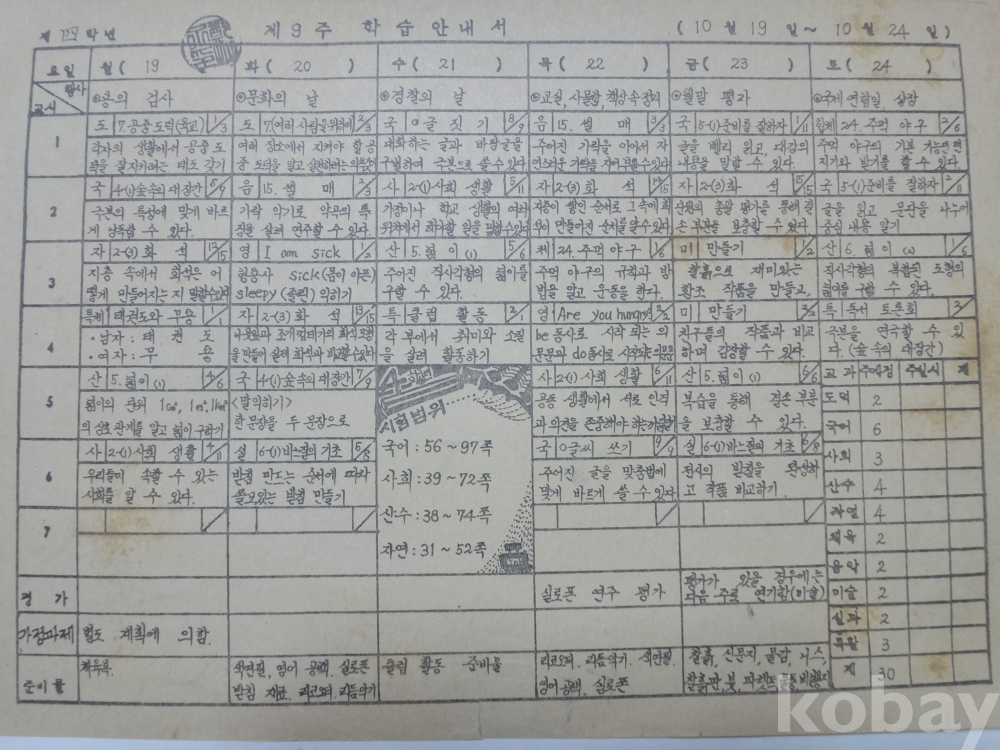 제 四 학년
제 9 주 학 습 안 내 서
( 10 월 19 일 ~ 10 월 24 일 )
요 일
월 ( 19 )
화 ( 20 )
수 ( 21 )
목 ( 22 )
금 ( 23 )
토 ( 24 )
행사
교시
용의 검사
문화의 날
경찰의 날
교실, 사물함, 책상 속 정리
월말 평가
국제 연합일,
1
도 7. 공중 도덕(육교) 1/3
각자의 생활에서 공중 도
덕을 잘지키려는 태도 갖기
도 7.(여러 사람을 위하여) 2/3
여러 장소에서 지켜야 할 공
중 도덕을 알고 실천하려는
국 글 짓 기 8/9
대화하는 글과 바탕글을
구별하여 극본으로 쓸 수 있다
음 15. 썰 매 3/3
주어진 가락을 이어서 자
연스러운 가락을 지어 부를 수 있다
국 5-(1) 준비를 잘하자 1/11
글을 빨리 읽고 대강의
내용을 말할 수 있다.
체 24. 주먹 야구 2/6
주먹 야구의 기본 기능인 던
지기와 받기를 할 수 있다
2
국 4-(1) 숲속의 대장간 6/9
극본의 특성에 맞게 바르
게 낭독할 수 있다.
음 15. 썰 매 2/3
가락 악기로 악곡의 특
징을 살려 연주할 수 있다.
사 2-(1) 사회 생활 5/11
가정이나 학교 생활의 여러
위치에서 해야할 일을
자 2-(3) 화 석 14/15
지층이 쌓인 순서로 그 속에 화
석이 만들어진 순서를 알 수 있다
자 2-(3) 화 석 15/15
단원의 종합 평가를 통해 결
손 부분을 보충할 수 있다.
국 5-(1) 준비를 잘하자 2/11
글을 읽고 문단을 나누어
중심 내용 알기
3
자 2-(3) 화 석 12/15
지층 속에서 화석은 어
떻게 만들어지는 지 말할수있다
영 I am sick 1/2
형용사 sick(몸이 아픈)
sleepy (졸린) 익히기
산 5. 넓이 (1) 5/6
주어진 직사각형의 넓이를
구할 수 있다.
체 24. 주먹 야구 1/6
주먹 야구의 규칙과 방
법을 알고 운동을 한다.
미 만들기 1/2
찰흙으로 재미있는
환조 작품을 만들고,
산 6. 넓이 (2) 1/6
직사각형의 복합된 도형의
넓이를 구할 수 있다.
4
특 태권도와 무용 1/1
·남자 : 태 권 도
·여자 : 무 용
자 2-(3) 화 석 13/15
나뭇잎과 조개 껍데기의 화석 모형
을 만들어 실제 화석과 비교할 수 있다
특 클럽 활동 2/1
각 부에서 취미와 소질
을 살려 활동하기
영 Are you hungry? 2/2
be 동사로 시작되는 의
문문과 do동사로 시작되는 의문문
미 만들기 2/2
친구들의 작품과 비교
하며 감상할 수 있다.
특 독서 토론회
극본을 연극할 수 있
다. (숲 속의 대장간)
5
산 5. 넓이 (1) 4/6
넓이의 단위 1㎠, 1㎡, 1㎢
의 상호 관계를 알고 넓이 구하기
국 4-(1) 숲속의 대장간 7/9
<말익히기>
한 문장을 두 문장으로
시험범위
국어 : 56 ~ 97쪽
사회 : 39 ~ 72쪽
산수 : 38 ~ 74쪽
자연 : 31 ~ 52쪽
사 2-(1) 사회 생활 6/11
공동 생활에서 서로 인격
과 의견을 존중해야 하는
산 5. 넓이 (1) 6/6
복습을 통해 결손 부분
을 보충할 수 있다.
6
사 2-(1) 사회 생활 4/11
우리들이 속할 수 있는
사회를 알 수 있다.
실 6-(1) 바느질의 기초 5/8
받침 만드는 순서에 따라
쓸모있는 받침 만들기
국 글씨 쓰기 9/9
주어진 글을 맞춤법에
맞게 바르게 쓸 수 있다
실 6-(1) 바느질의 기초 6/8
접시의 받침을 완성하
고 작품 비교하기.
7
교 과
주예정
주실시
계
도덕 2
국어 6
사회 3
산수 4
자연 4
체육 2
음악 2
미술 2
실과 2
특활 3
계 30
평 가
실로폰 연주 평가
평가가 있을 경우에는
다음 주로 연기함 (미술)
가정과제
별도 계획에 의함.
준비물
체육복
색연필, 영어 공책, 실로폰
받침 재료, 리코오더, 리듬악기
클럽 활동 준비물
리코오더, 리듬악기, 색연필,
영어공책, 실로폰
찰흙, 신문지, 물감, 니스,
찰흙판, 붓, 파렛트,
kobay